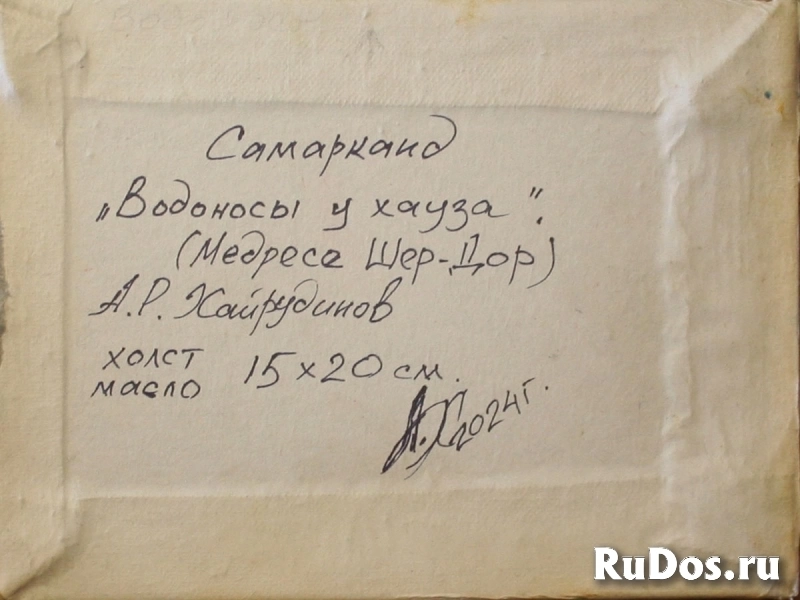 Самарканд
„Водоносы у хауза".
(Медресе Шер-Дор)
А.Р. Хайрудинов
холст
масло 15х20 см.
А.Х 2024 г.
RuDos.ru